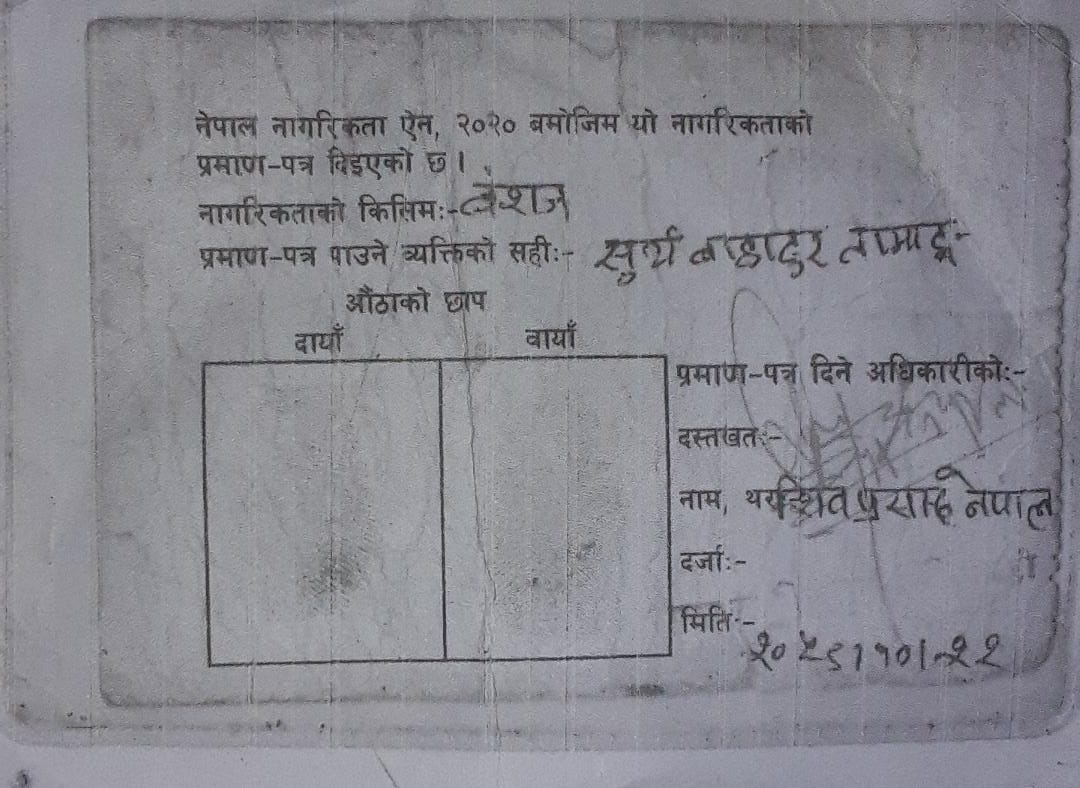 नेपाल नागरिकता ऐन, २०२० बमोजिम यो नागरिकताको
प्रमाण-पत्र दिइएको छ।
नागरिकताको किसिमः- वंशज
प्रमाण-पत्र पाउने व्यक्तिको सहीः- सुर्य बाहादुर तामाङ्ग
औंठाको छाप
दायाँ बायाँ
प्रमाण-पत्र दिने अधिकारीकोः-
दस्तखतः-
नाम, थरः- शिव प्रसाद नेपाल
दर्जाः-
मितिः-